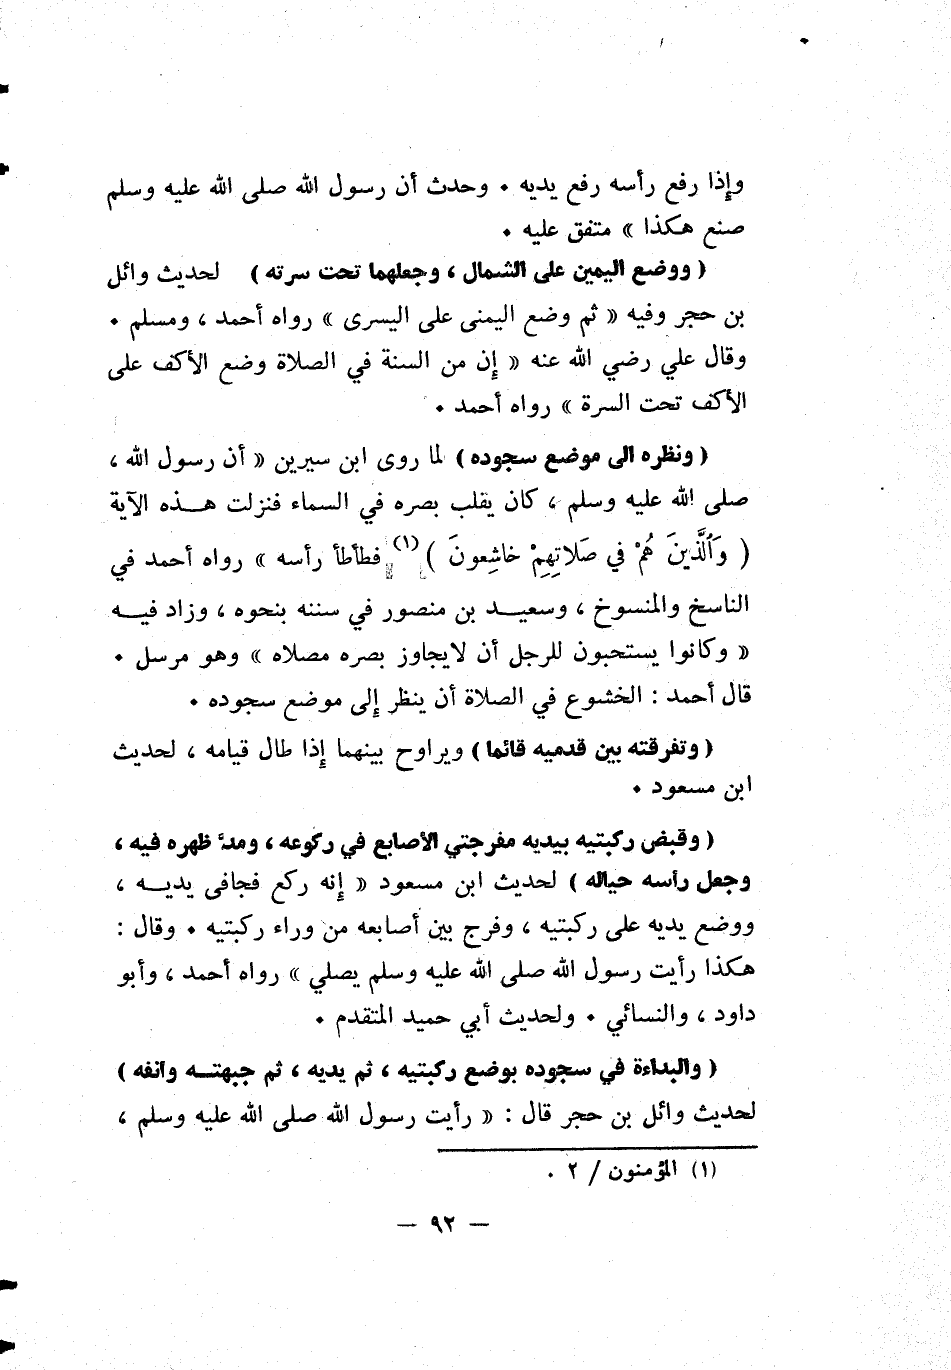 وإذا رفع رأسه رفع يديه . وحدث أن رسول الله صلى الله عليه وسلم
صنع هكذا » متفق عليه .
( ووضع اليمين على الشمال ، وجعلهما تحت سرته ) لحديث وائل
بن حجر وفيه « ثم وضع اليمنى على اليسرى » رواه أحمد ، ومسلم .
وقال علي رضي الله عنه « إن من السنة في الصلاة وضع الأكف على
الأكف تحت السرة » رواه أحمد .
( ونظره الى موضع سجوده ) لما روى ابن سيرين « أن رسول الله ،
صلى الله عليه وسلم ، كان يقلب بصره في السماء فنزلت هذه الآية
( وَٱلَّذِينَ هُمْ في صَلاتِهِمْ خاشِعونَ )(١) فطأطأ رأسه » رواه أحمد في
الناسخ والمنسوخ ، وسعيد بن منصور في سننه بنحوه ، وزاد فيه
« وكانوا يستحبون للرجل أن لايجاوز بصره مصلاه » وهو مرسل .
قال أحمد : الخشوع في الصلاة أن ينظر إلى موضع سجوده .
( وتفرقته بين قدميه قائما ) ويراوح بينهما إذا طال قيامه ، لحديث
ابن مسعود .
( وقبض ركبتيه بيديه مفرجتي الأصابع في ركوعه ، ومدّ ظهره فيه ،
وجعل رأسه حياله ) لحديث ابن مسعود « إنه ركع فجافى يديه ،
ووضع يديه على ركبتيه ، وفرج بين أصابعه من وراء ركبتيه . وقال :
هكذا رأيت رسول الله صلى الله عليه وسلم يصلي » رواه أحمد ، وأبو
داود ، والنسائي . ولحديث أبي حميد المتقدم .
( والبداءة في سجوده بوضع ركبتيه ، ثم يديه ، ثم جبهته وانفه )
لحديث وائل بن حجر قال : « رأيت رسول الله صلى الله عليه وسلم ،
(١) المؤمنون / ٢ .
— ٩٢ —